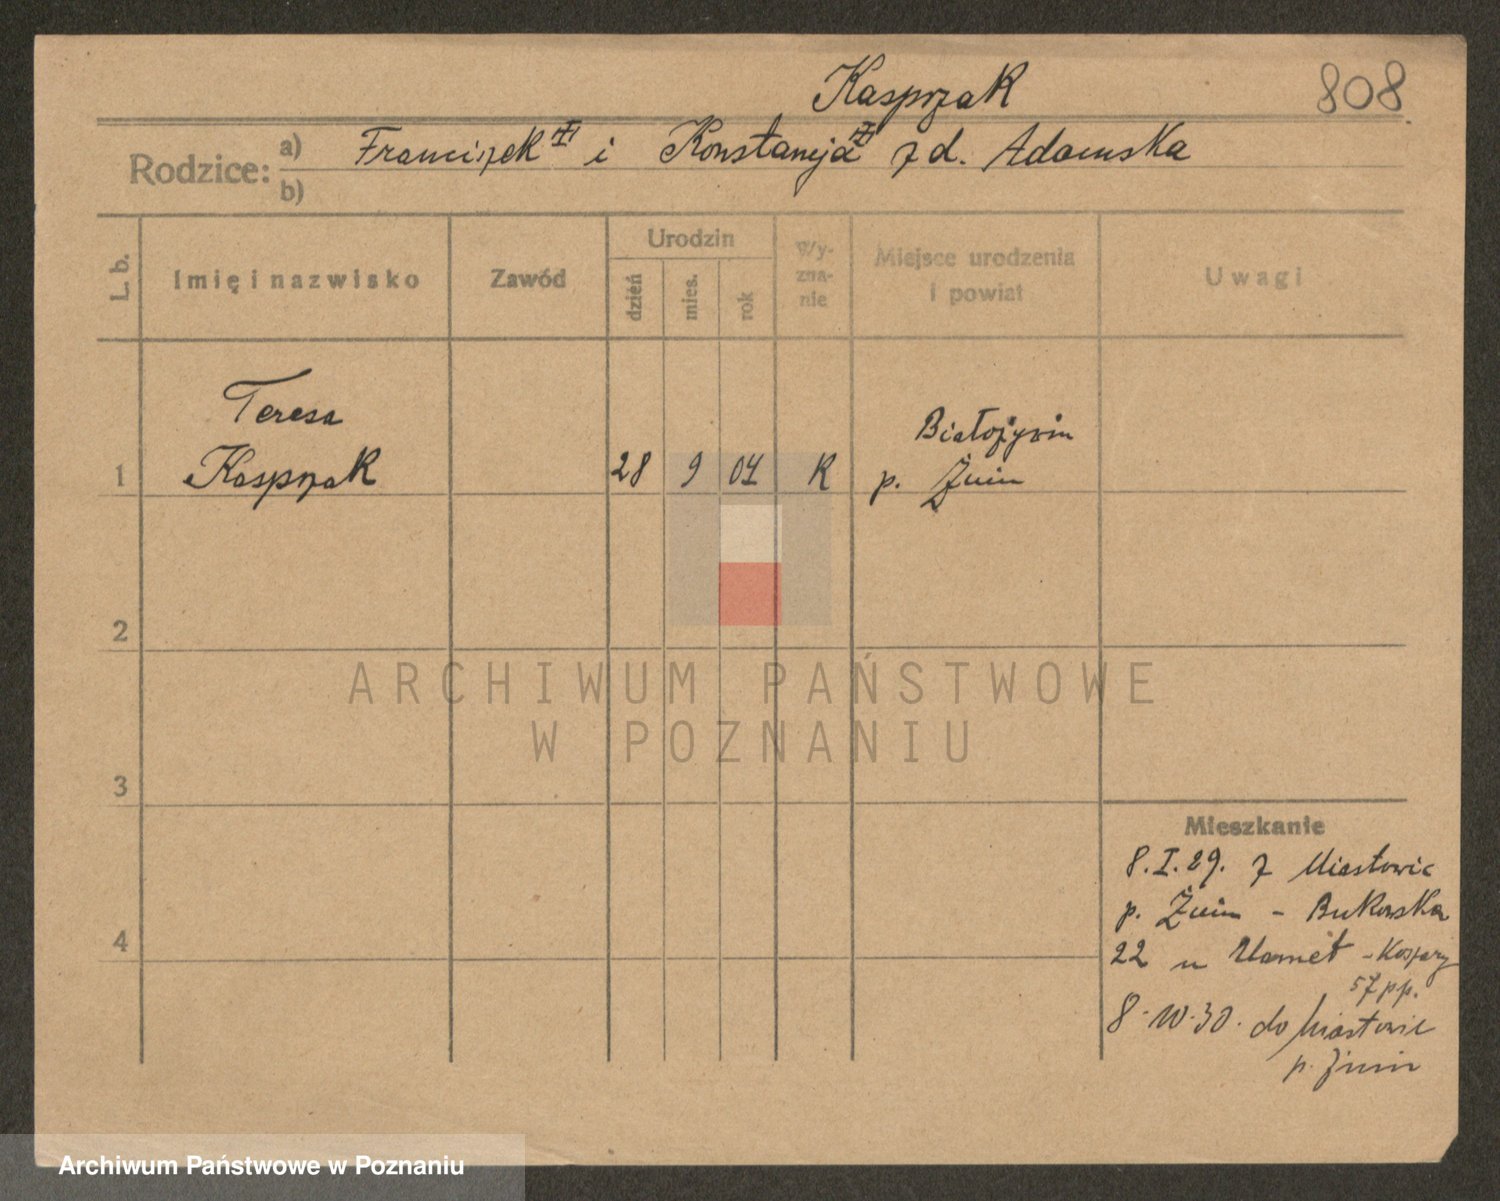 Kasprzak
808
Rodzice: a) Franciszek i Konstancja z d. Adamska
b)
L. b.
Imię i nazwisko
Zawód
Urodzin
dzień
mies.
rok
Wy-
zna-
nie
Miejsce urodzenia
i powiat
Uwagi
1
Teresa
Kasprzak
28 9 04 K
Białożywin
p. Żnin
2
3
4
ARCHIWUM PAŃSTWOWE
W POZNANIU
Mieszkanie
8.I.29. z Miastowic
p. Żnin - Bukowska
22 u - Koszary
57 pp.
8.10.30. do Miastowic
p. Żnin
Archiwum Państwowe w Poznaniu